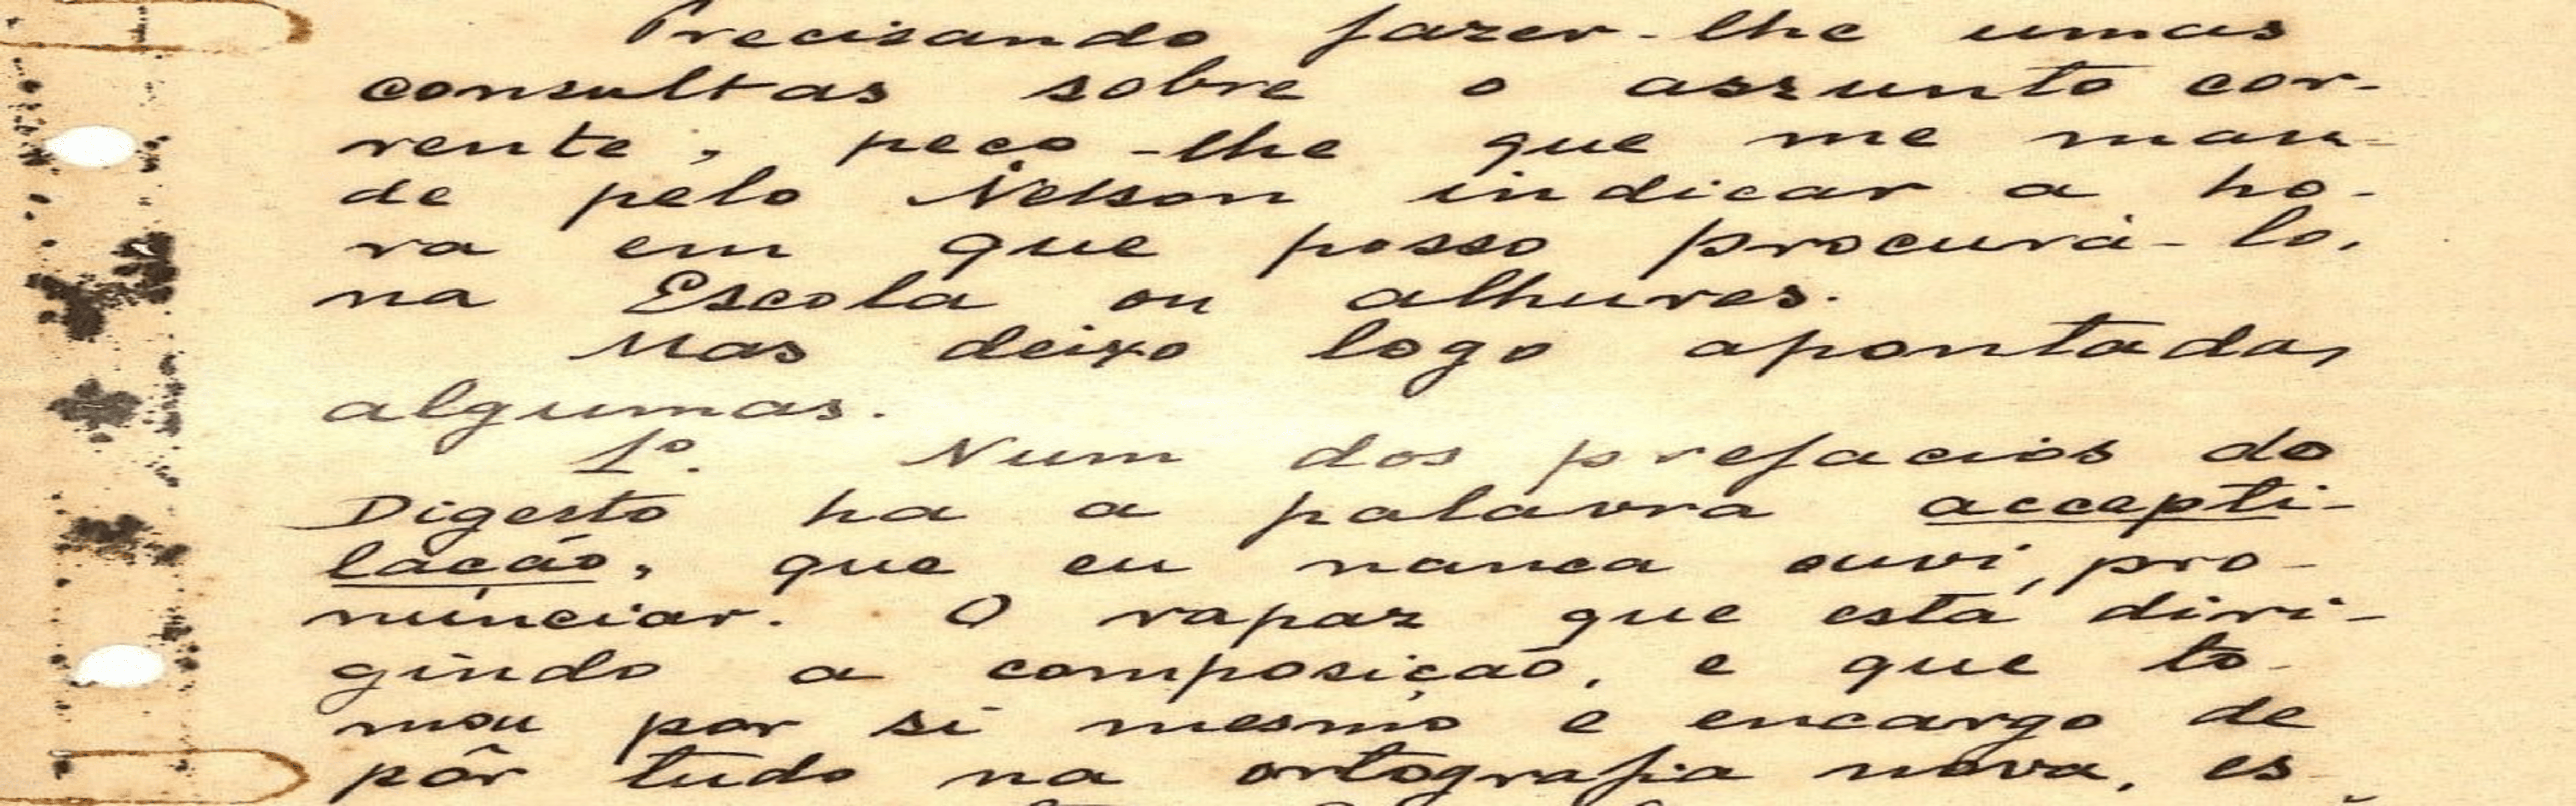 Precisando fazer-lhe umas
consultas sobre o assunto cor-
rente, peço-lhe que me man-
de pelo Nelson indicar a ho-
ra em que posso procurá-lo,
na Escola ou alhures.
Mas deixo logo apontadas
algumas.
1º. Num dos prefacios do
Digesto ha a palavra accepti-
lação, que eu nunca ouvi pro-
nunciar. O rapaz que está diri-
gindo a composição, e que to-
mou por si mesmo o encargo de
pôr tudo na ortografia nova, es-